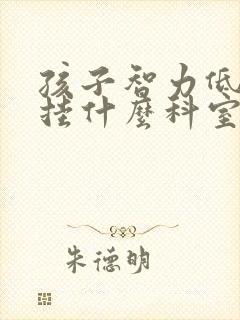 孩子智力低
挂什麼科室
朱德明